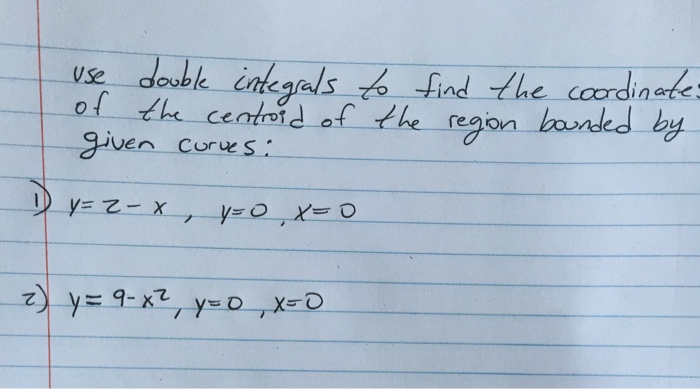 use double integrals to find the coordinates
of the centroid of the region bounded by
given curves:
1) y=2-x, y=0, x=0
2) y=9-x², y=0, x=0